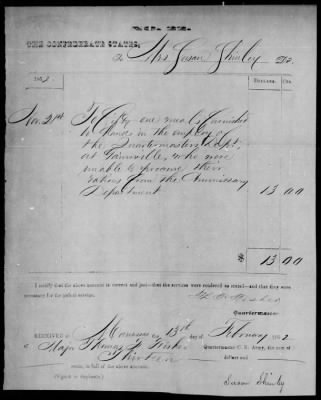 NO. 22.
THE CONFEDERATE STATES,
To Mrs. Susan Shirley Dr.
DOLLARS. CTS.
Nov.
To fifty one meals furnished
to hands in the employ of
the Quartermasters Dept
at Gainsville, who were
unable to procure their
rations from the Commissary
Department 13 00
$ 13 00
I certify that the above account is correct and just—that the services were rendered as stated—and that they were
necessary for the public service.
Quartermaster.
RECEIVED at Manassas 13th day of February 2
of Major Thomas Quartermaster C. S. Army, the sum of
Thirteen dollars and
cents, in full of the above account.
(Signed in duplicate.)
Susan Shirley